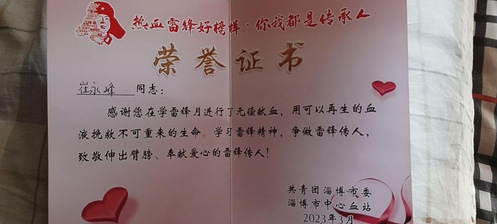 热血雷锋好榜样·你我都是传承人
荣誉证书
崔永峰 同志：
感谢您在学雷锋月进行了无偿献血，用可以再生的血
液挽救不可重来的生命。学习雷锋精神，争做雷锋传人，
致敬伸出臂膀、奉献爱心的雷锋传人！
共青团淄博市委
淄博市中心血站
2023年3月